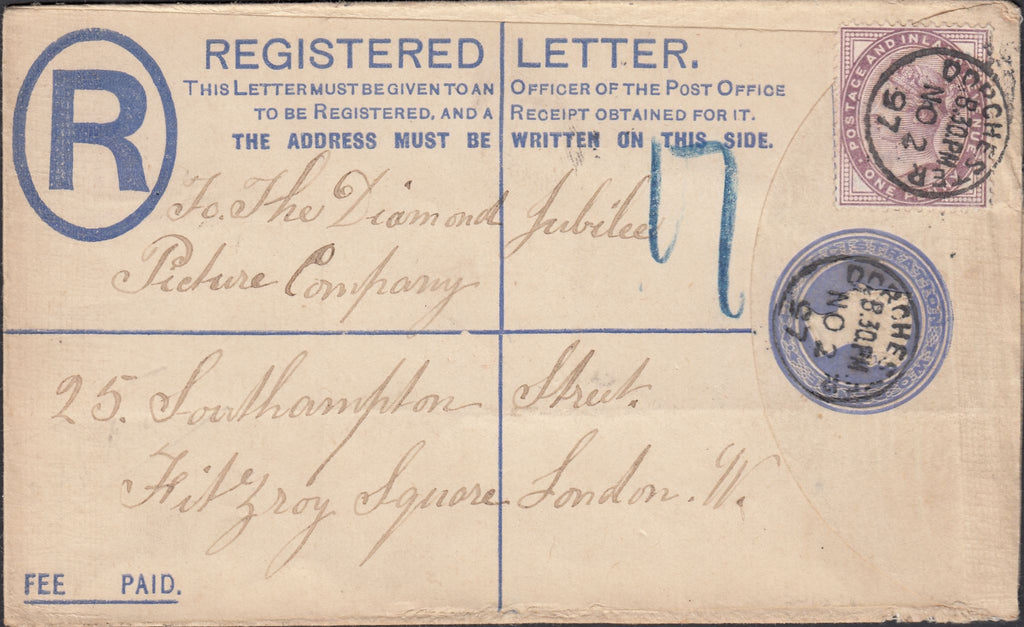 REGISTERED LETTER.
THIS LETTER MUST BE GIVEN TO AN OFFICER OF THE POST OFFICE
TO BE REGISTERED, AND A RECEIPT OBTAINED FOR IT.
THE ADDRESS MUST BE WRITTEN ON THIS SIDE.
R
POSTAGE AND INL
ONE
DORCHESTER
8.30PM
NO 2
97
17
To. The Diamond Jubilee
Picture Company
DORCHESTER
8.30PM
NO 2
97
25. Southampton Street.
Fitzroy Square London. W.
FEE PAID.